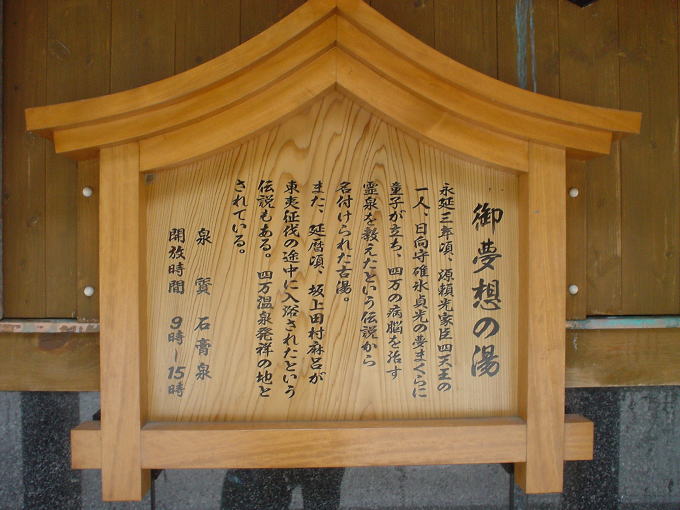 御夢想の湯
永延三年頃、源頼光家臣四天王の
一人、日向守碓氷貞光の夢まくらに
童子が立ち、四万の病脳を治す
霊泉を教えたという伝説から
名付けられた古湯。
また、延暦頃、坂上田村麻呂が
東夷征伐の途中に入浴されたという
伝説もある。四万温泉発祥の地と
されている。
泉質 石膏泉
開放時間 9時~15時